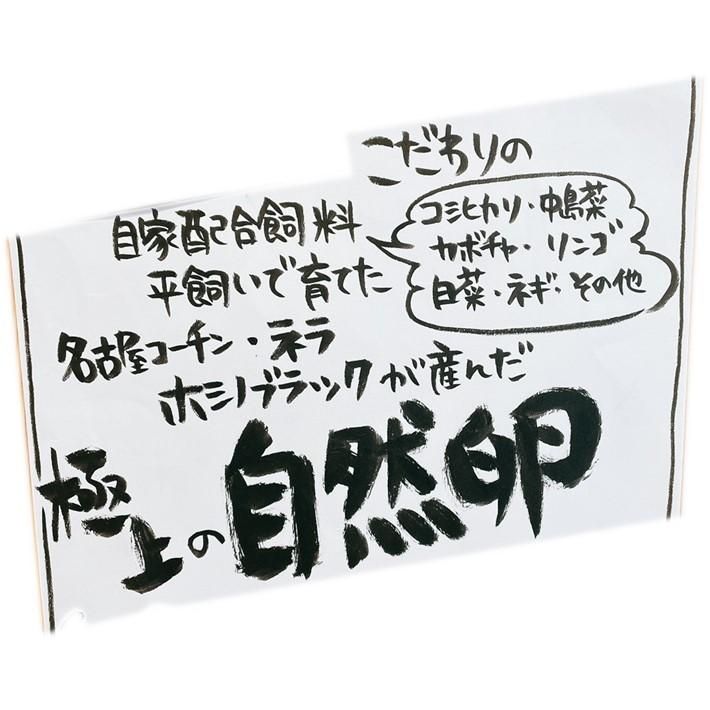 こだわりの
自家配合飼料
コシヒカリ・中島菜
カボチャ・リンゴ
白菜・ネギ・その他
平飼いで育てた
名古屋コーチン・ネラ
ホシノブラックが産んだ
極上の自然卵